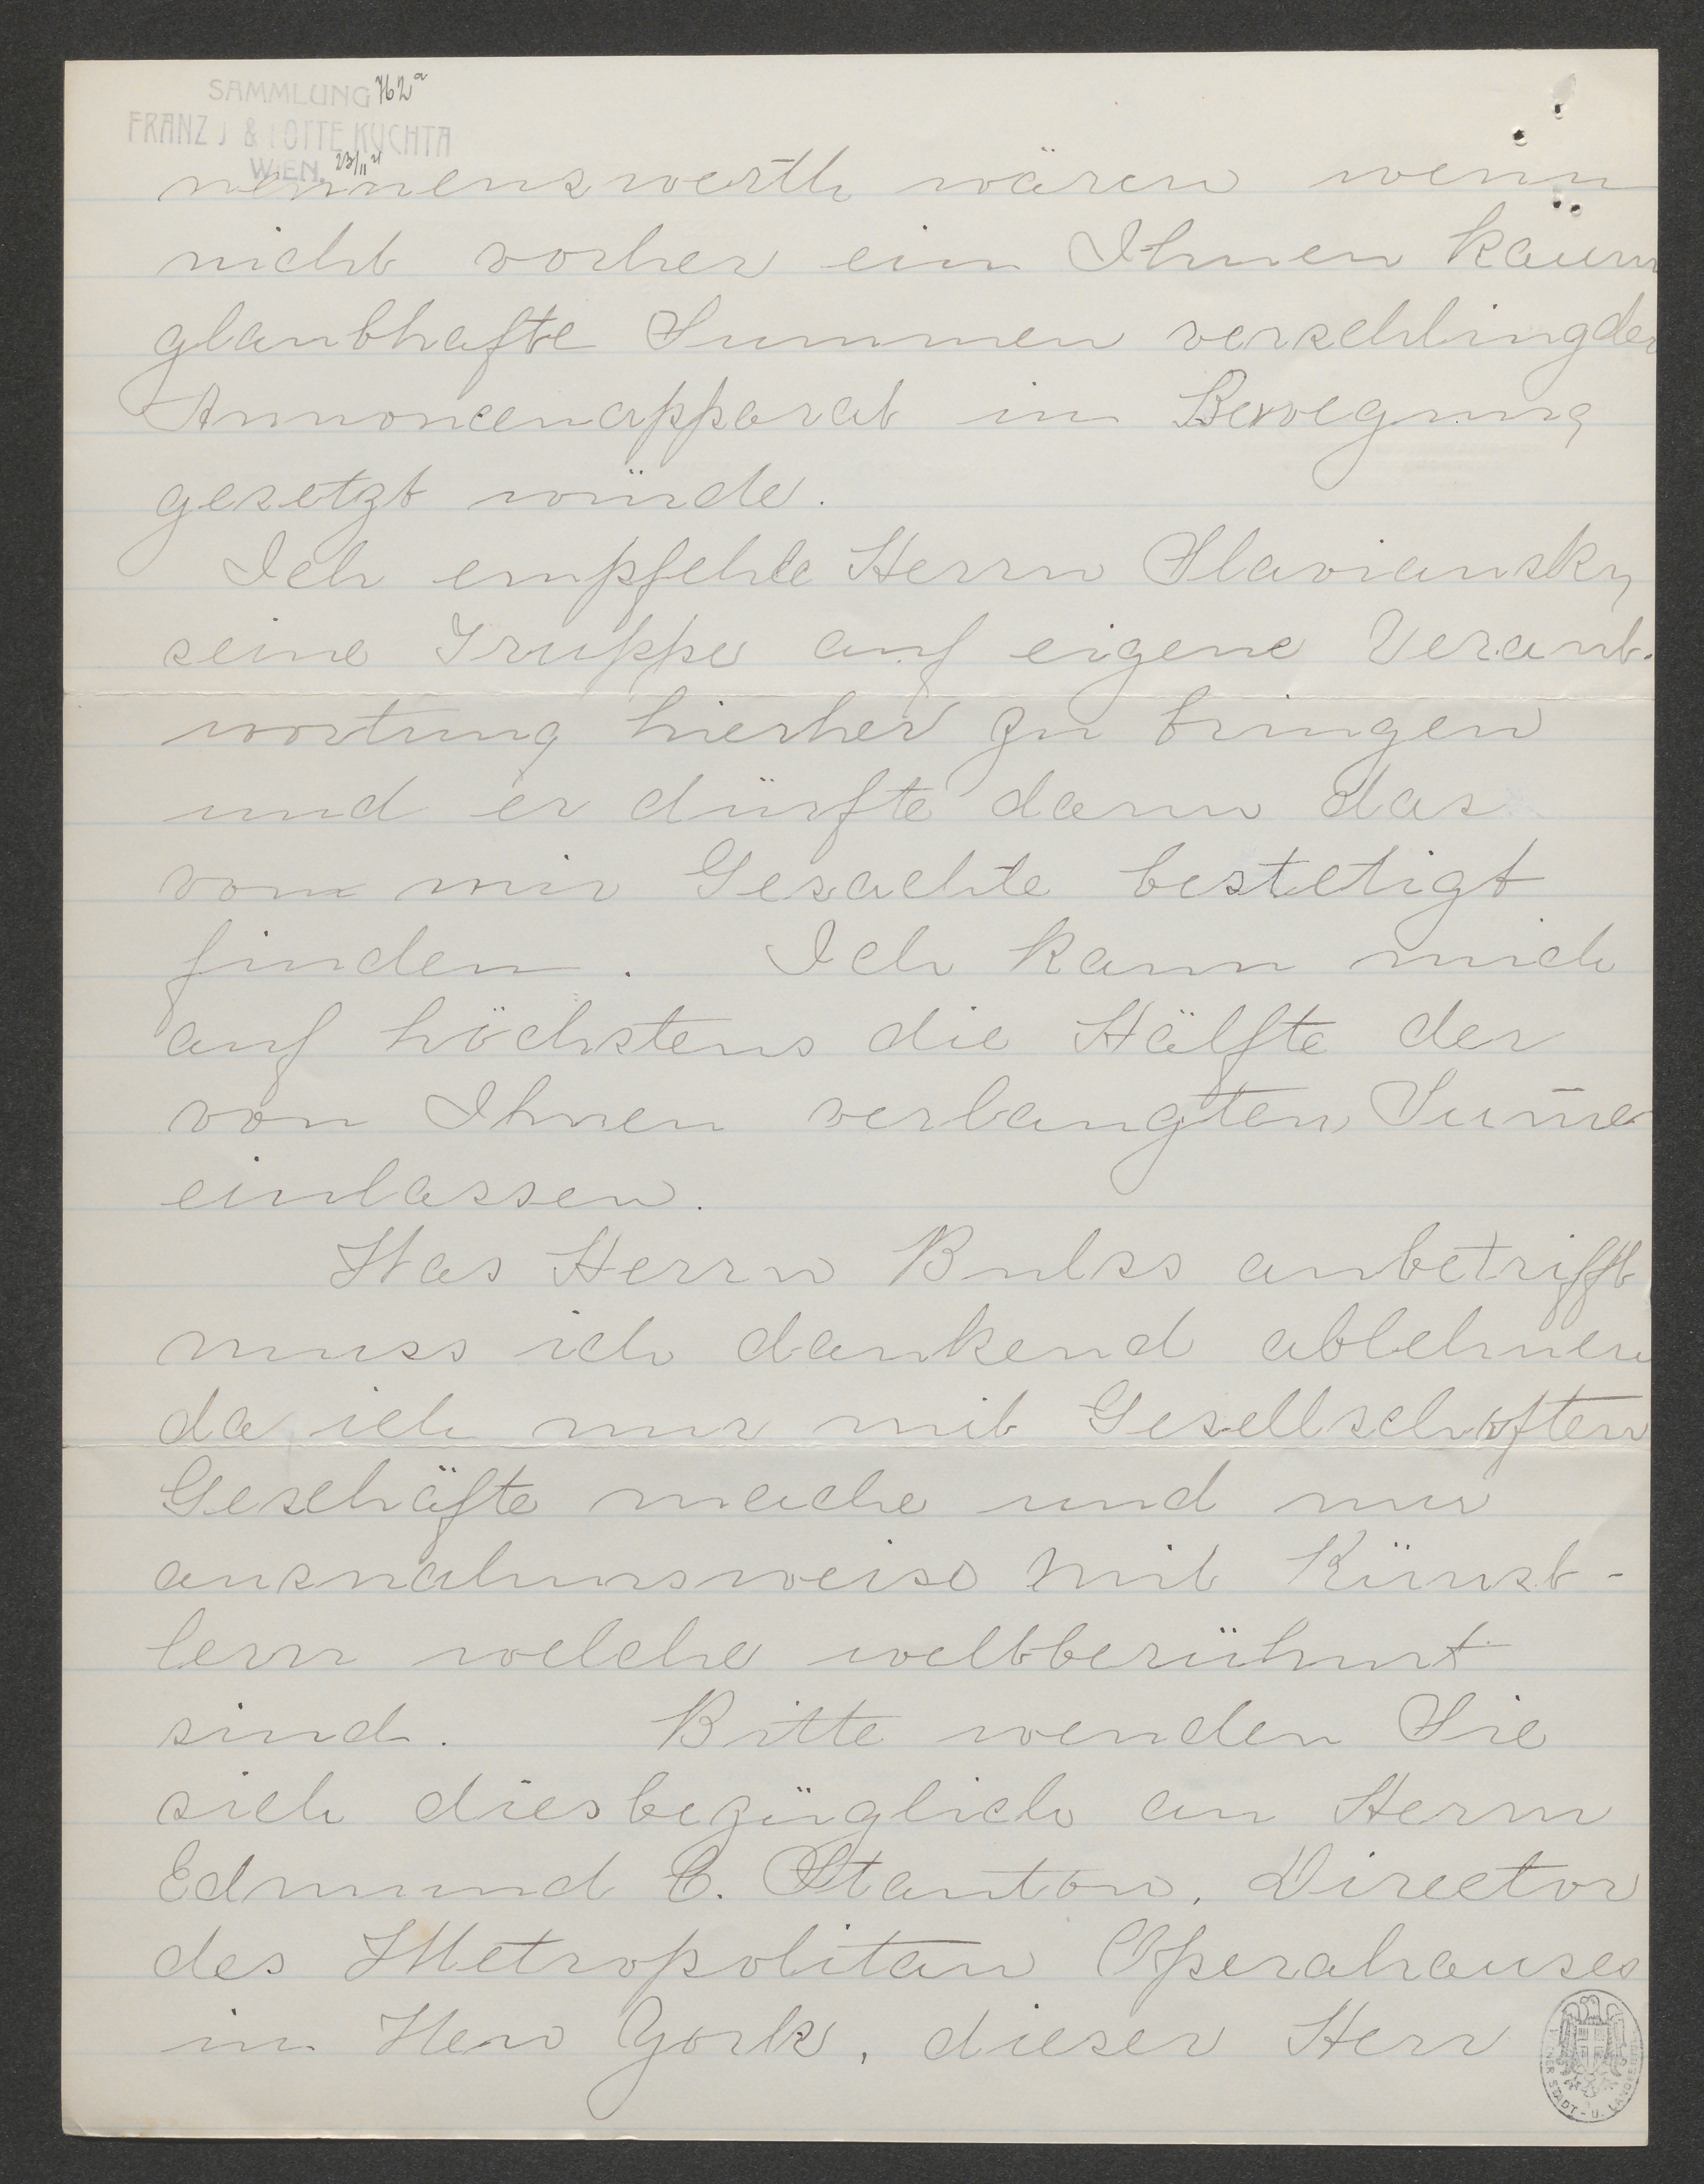 SAMMLUNG 762a
FRANZ J & LOTTE KUCHTA
WIEN, 23/11 21
nennenswerth wären wenn
nicht vorher ein Ihnen kaum
glaubhafte Summen verschlingder
Annoncenapparat in Bewegung
gesetzt würde.
Ich empfehle Herrn Slaviansky
seine Truppe auf eigene Verant-
wortung hierher zu bringen
und er dürfte dann das
von mir Gesachte bestetigt
finden. Ich kann mich
auf höchstens die Hälfte der
von Ihnen verlangten Sum̄e
einlassen.
Was Herrn Bulss anbetrifft
muss ich dankend ablehnen
da ich nur mit Gesellschaften
Geschäfte mache und nur
ausnahmsweise mit Künst-
lern welche weltberühmt
sind. Bitte wenden Sie
sich diesbezüglich an Herrn
Edmund C. Stanton, Director
des Metropolitan Operahauses
in New York, dieser Herr
WIENER STADT- U. LANDESBIBLIOTHEK